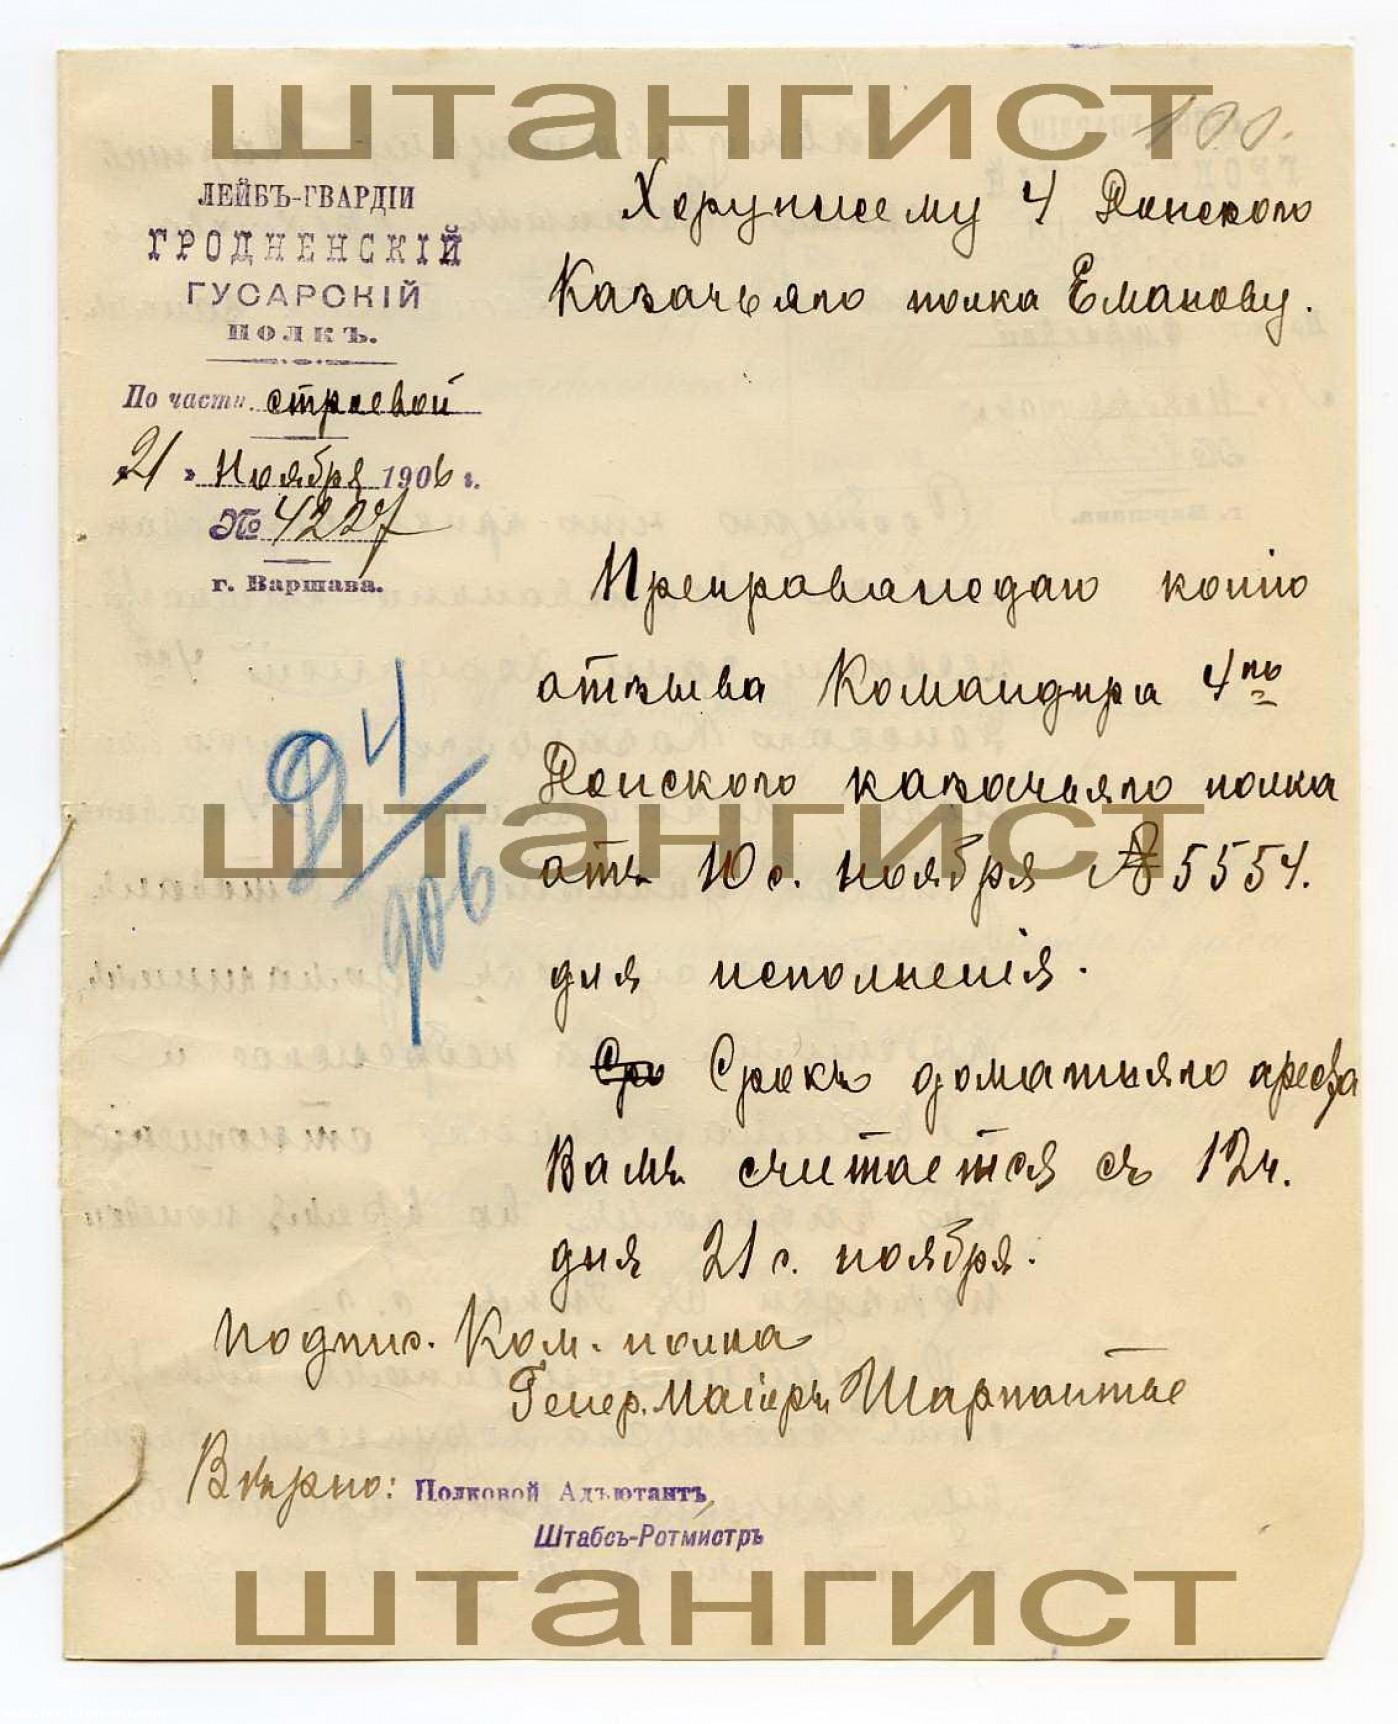 штангист
100.
ЛЕЙБЪ-ГВАРДІИ
ГРОДНЕНСКІЙ
ГУСАРСКІЙ
ПОЛКЪ.
По части строевой
"21" Ноября 1906 г.
№ 4227
г. Варшава.
Хорунжему 4 Донского
Казачьяго полка Еманову.
Препровождаю копію
отзыва Командира 4го
Донского казачьяго полка
штангист
отъ 10 с. ноября № 5554.
для исполненія.
Сро Срокъ домашняго ареста
Вамъ считается съ 12 ч.
дня 21 с. ноября.
Д 4/906
Подпис. Ком. полка
Генер. Маіоръ Шарпантье
Вѣрно: Полковой Адъютантъ,
Штабсъ-Ротмистръ
штангист